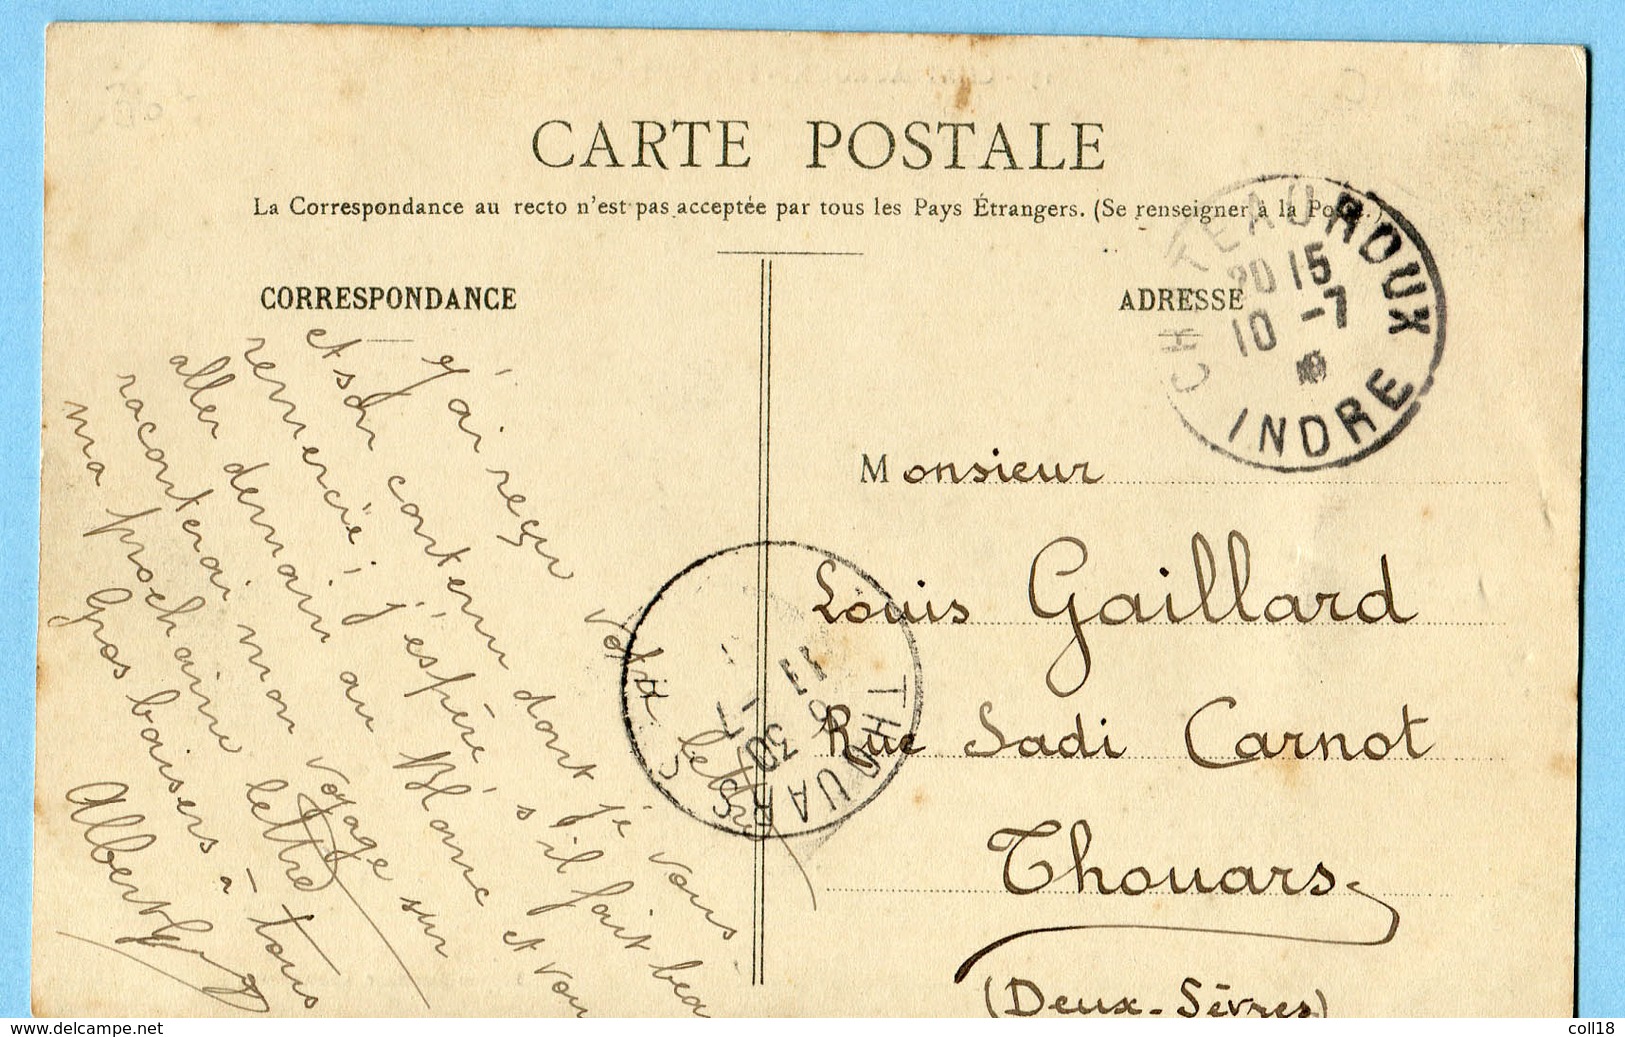 CARTE POSTALE
La Correspondance au recto n'est pas acceptée par tous les Pays Étrangers. (Se renseigner à la Poste.)
CORRESPONDANCE
J'ai reçu votre lettre
et son contenu dont je vous
remercie ; j'espère s'il fait beau
aller demain au Blanc et vous
raconterai mon voyage sur
ma prochaine lettre
Gros baisers à tous
Albert
ADRESSE
CHATEAUROUX
20 15
10 -7
INDRE
Monsieur
Louis Gaillard
Rue Sadi Carnot
Thouars
(Deux-Sèvres)
THOUARS
30
11 -7
www.delcampe.net
coll18